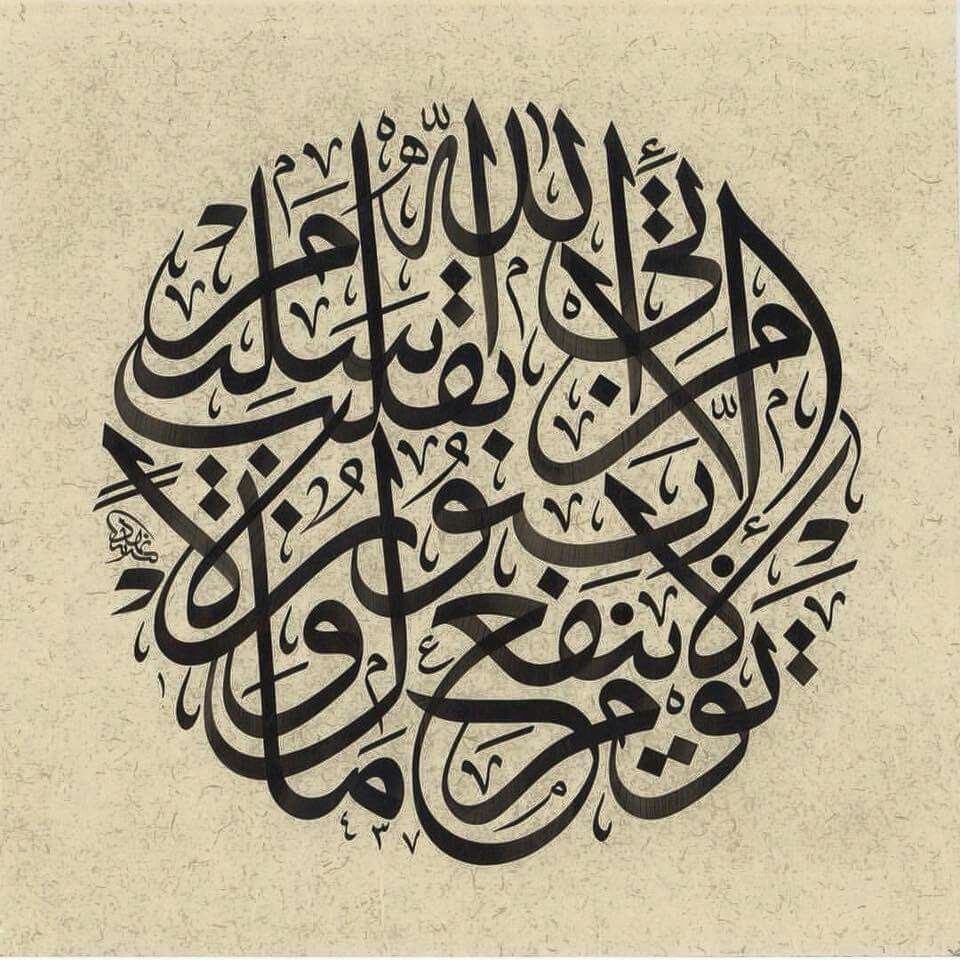 يَوْمَ لَا يَنفَعُ مَالٌ وَلَا بَنُونَ
إِلَّا مَنْ أَتَى اللَّهَ بِقَلْبٍ سَلِيمٍ
٤٣٧